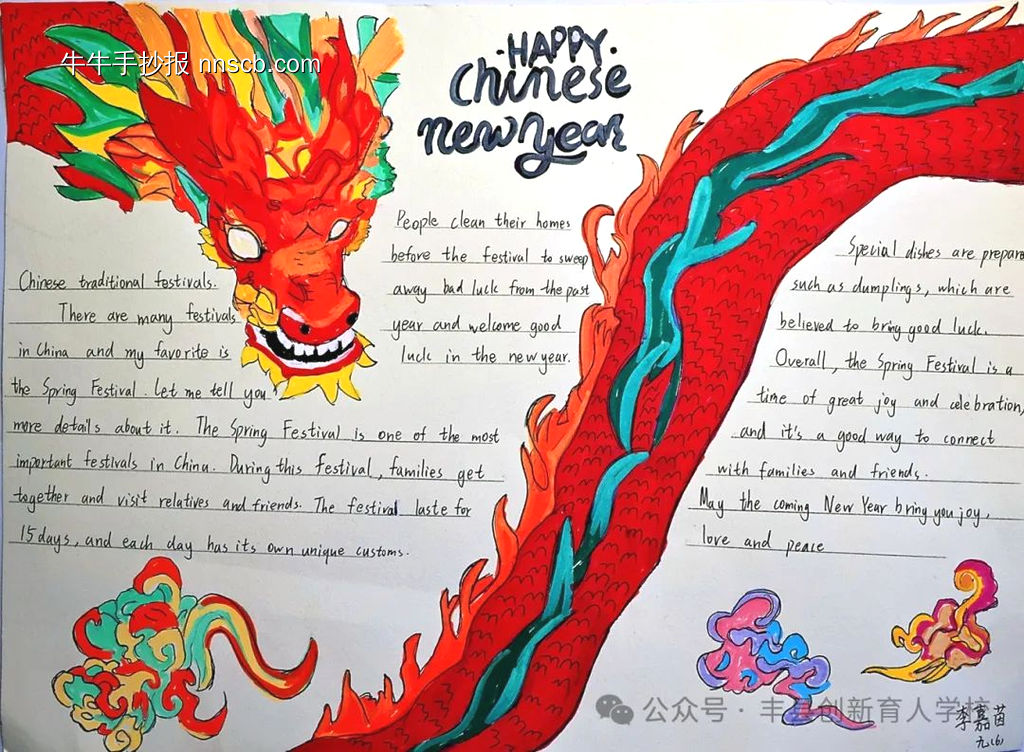 牛牛手抄报 nnscb.com
·HAPPY·
Chinese
new year
Chinese traditional festivals.
There are many festivals
in China and my favorite is
the Spring Festival. Let me tell you
more details about it. The Spring Festival is one of the most
important festivals in China. During this festival, families get
together and visit relatives and friends. The festival laste for
15 days, and each day has its own unique customs.
People clean their homes
before the festival to sweep
away bad luck from the past
year and welcome good
luck in the new year.
Special dishes are prepare
such as dumplings, which are
believed to bring good luck.
Overall, the Spring Festival is a
time of great joy and celebration,
and it's a good way to connect
with families and friends.
May the coming New Year bring you joy,
love and peace
公众号 · 丰县创新育人学校
李嘉茵
九(6)